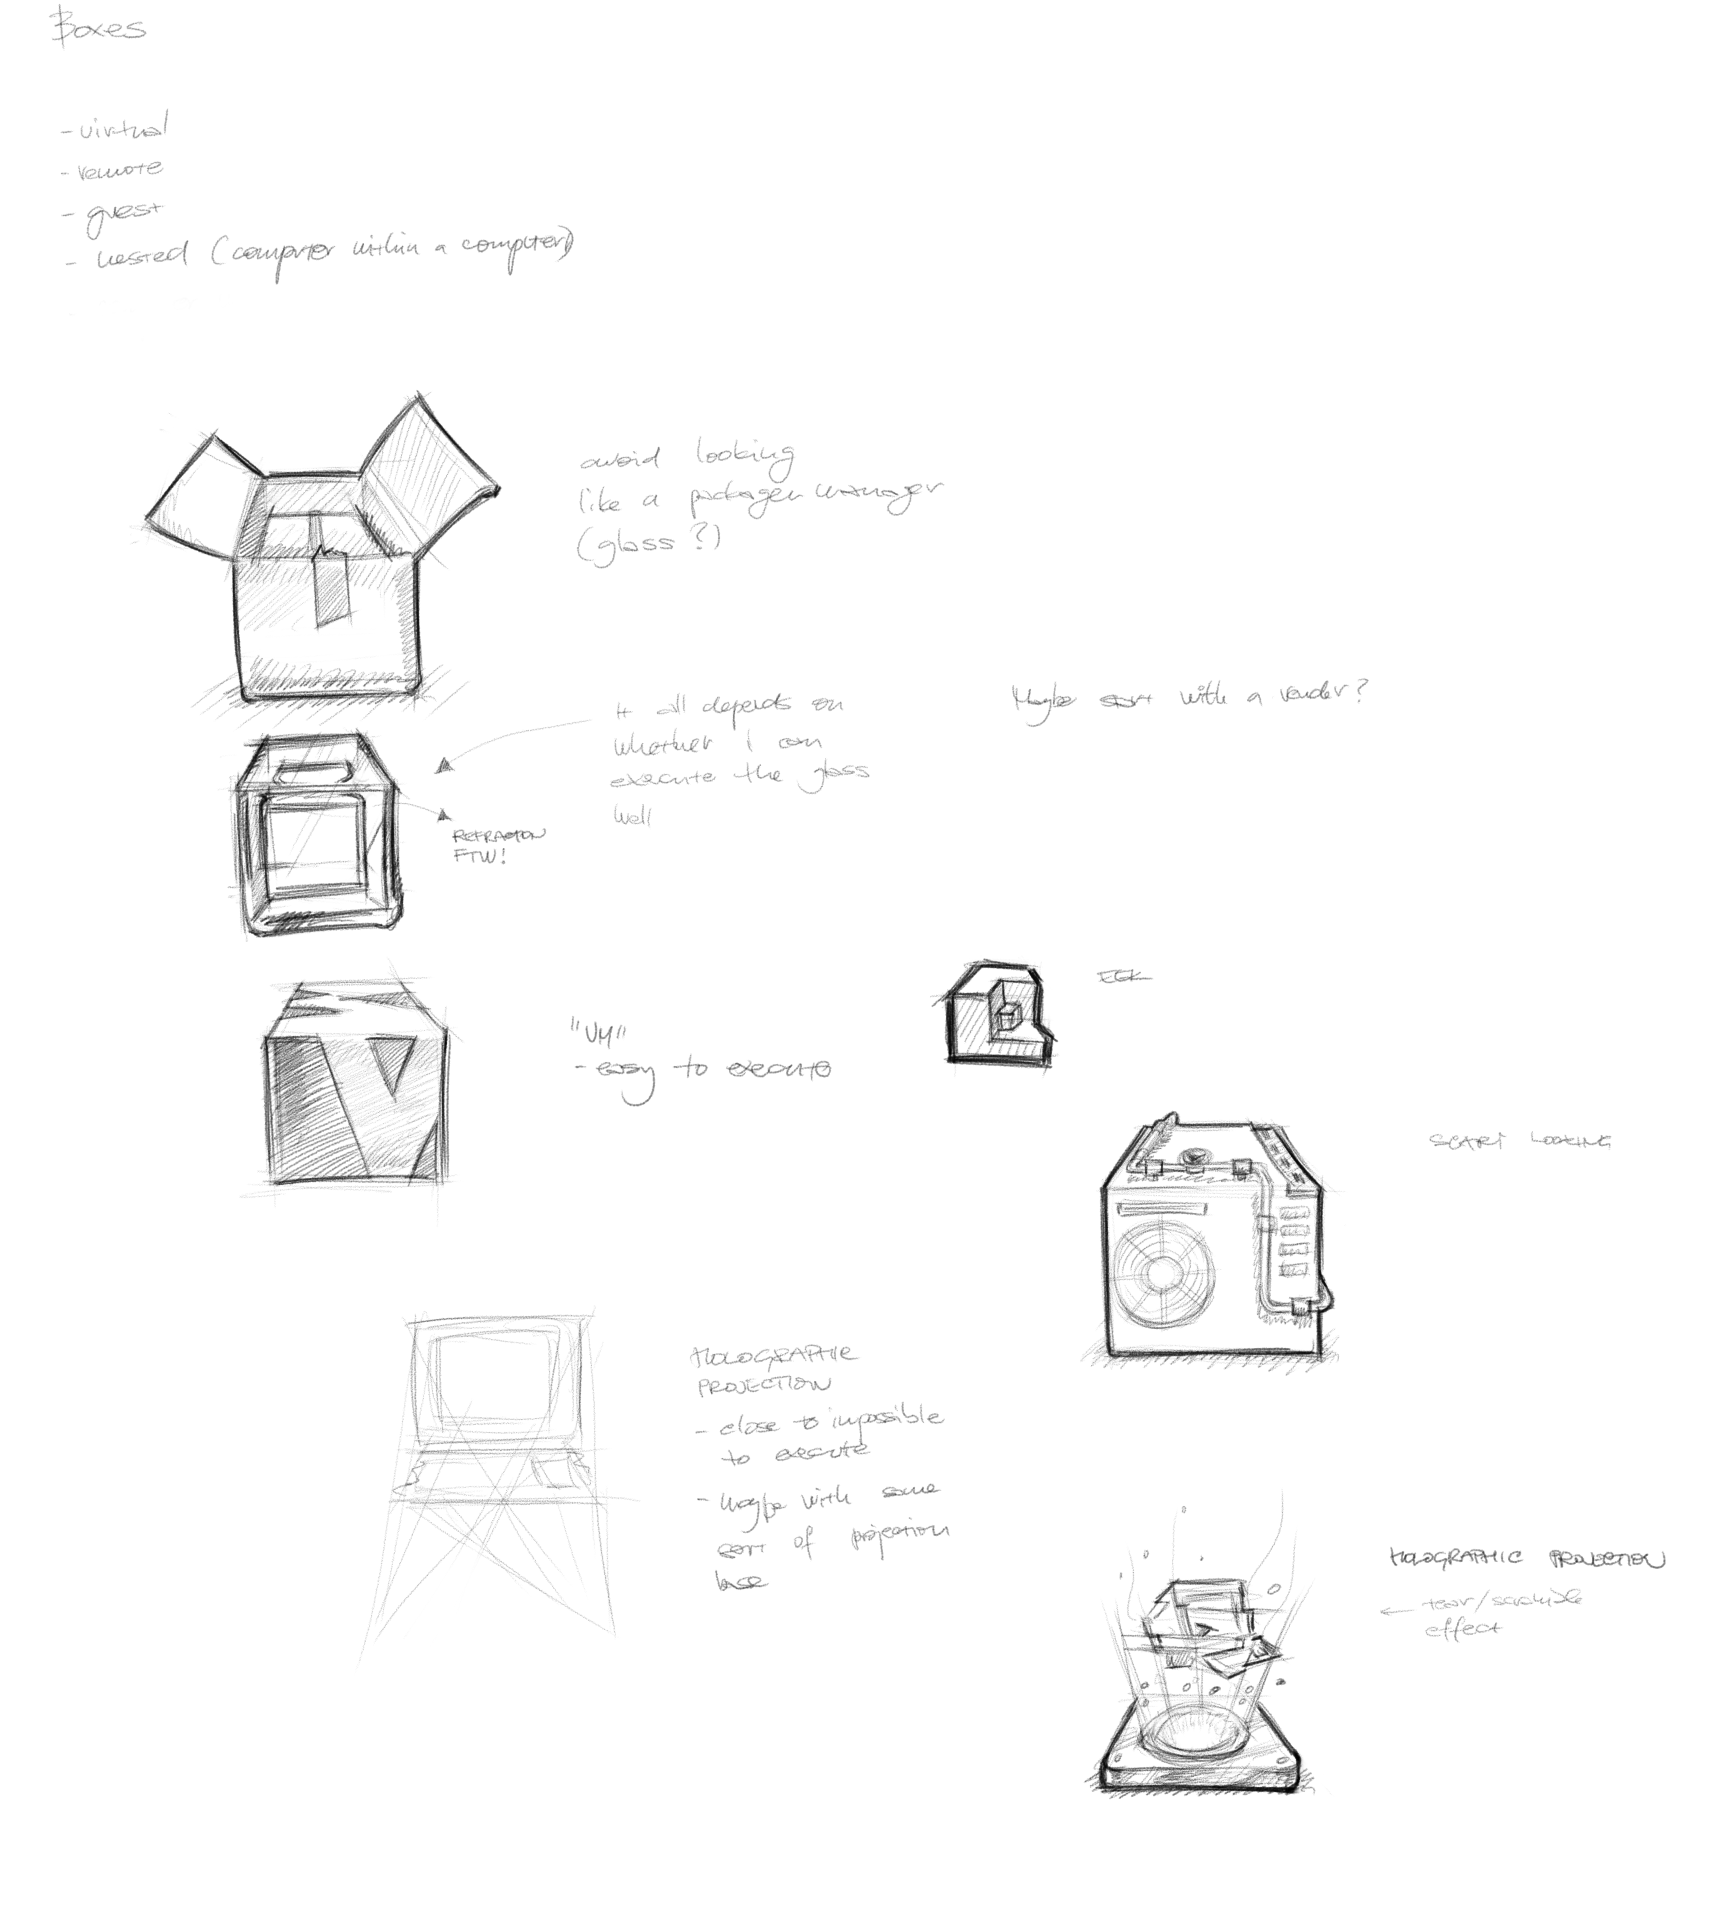 Boxes
- virtual
- remote
- guest
- nested (computer within a computer)
avoid looking
like a packagen manager
(glass?)
It all depends on
whether I can
execute the glass
well
Maybe sort with a render?
REFRACTION
FTW!
EEK
"VM"
- easy to execute
SCARY LOOKING
HOLOGRAPHIC
PROJECTION
- close to impossible
to execute
- maybe with some
sort of projection
base
HOLOGRAPHIC PROJECTION
← tear/scramble
effect